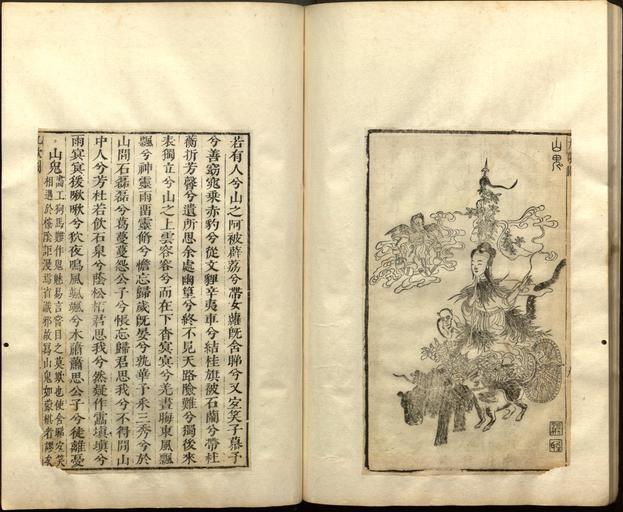 山鬼
若有人兮山之阿被薜荔兮帶女蘿既含睇兮又宜笑子慕予
兮善窈窕乘赤豹兮從文貍辛夷車兮結桂旗被石蘭兮帶杜
衡折芳馨兮遺所思余處幽篁兮終不見天路險難兮獨後來
表獨立兮山之上雲容容兮而在下杳冥冥兮羌晝晦東風飄
飄兮神靈雨留靈脩兮憺忘歸歲既晏兮孰華予采三秀兮於
山間石磊磊兮葛蔓蔓怨公子兮悵忘歸君思我兮不得閒山
中人兮芳杜若飲石泉兮蔭松栢君思我兮然疑作靁填填兮
雨冥冥猨啾啾兮狖夜鳴風颯颯兮木蕭蕭思公子兮徒離憂
山鬼
畵工狗馬難作鬼魅易言嘗目之莫欺也使含睇宜笑
相遇於
山鬼如